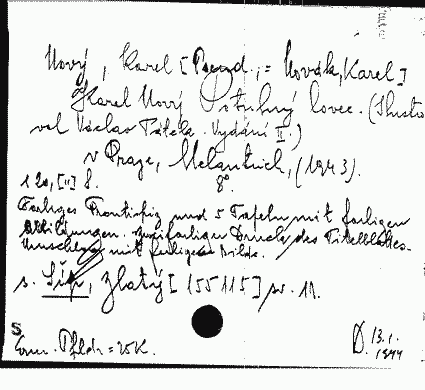 Nový, Karel [Pseud., = Novák, Karel]
Karel Nový Potulný lovec. (Ilustro
val Václav Fiala. Vydání II.)
v Praze, Melantrich, (1943).
120, [II] S. 8°.
Farbiges Frontispiz und 5 Tafeln mit farbigen
Abbildungen. Zweifarbiger Druck des Titelblattes.
Umschlag mit farbigem Bilde.
s. Šíp, Zlatý [155115] sv. 11.
S
Erm. Pfldr. = 25 K.
D. 13.1.
1944